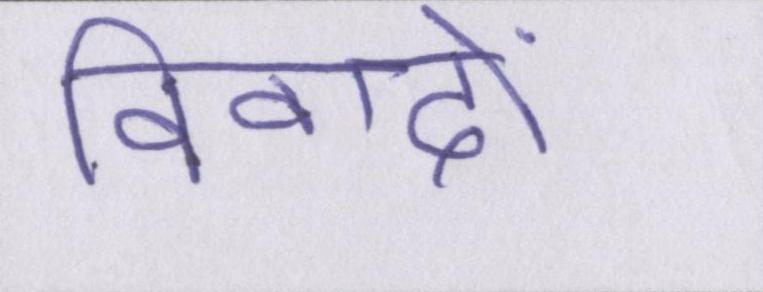 विवादों